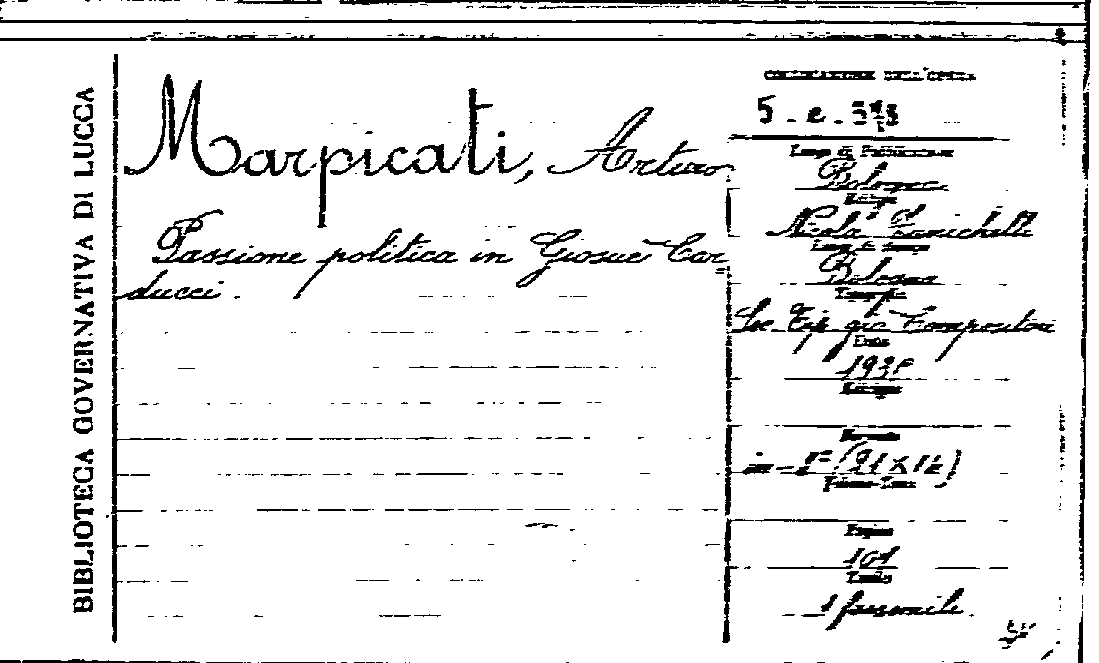 BIBLIOTECA GOVERNATIVA DI LUCCA
Marpicati, Arturo
Passione politica in Giosuè Car
ducci.
COLLOCAZIONE DELL'OPERA
Luogo di Pubblicazione
Bologna
Nicola Zanichelli
Luogo di stampa
Bologna
Tipografia
Soc. Tip. già Compositori
Data
Formato
Pagine
101
Tavole
1 facsimile